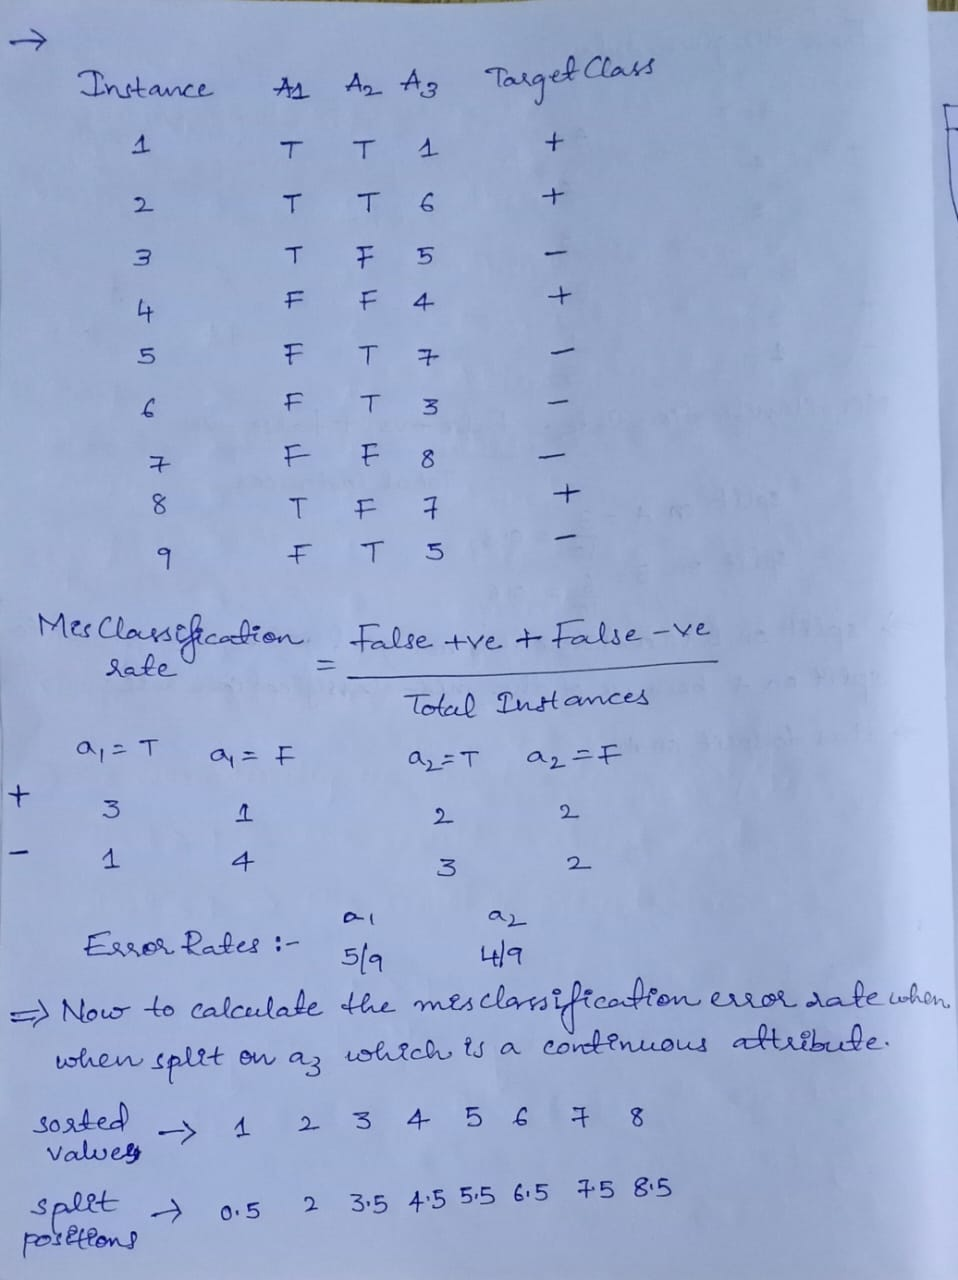 →
Instance A1 A2 A3 Target Class
1 T T 1 +
2 T T 6 +
3 T F 5 −
4 F F 4 +
5 F T 7 −
6 F T 3 −
7 F F 8 −
8 T F 7 +
9 F T 5 −
MisClassification rate = False +ve + False -ve / Total Instances
a₁ = T a₁ = F a₂ = T a₂ = F
+ 3 1 2 2
− 1 4 3 2
a₁ a₂
Error Rates :- 5/9 4/9
⇒ Now to calculate the misclassification error rate when
when split on a₃ which is a continuous attribute.
sorted values → 1 2 3 4 5 6 7 8
split positions → 0.5 2 3.5 4.5 5.5 6.5 7.5 8.5